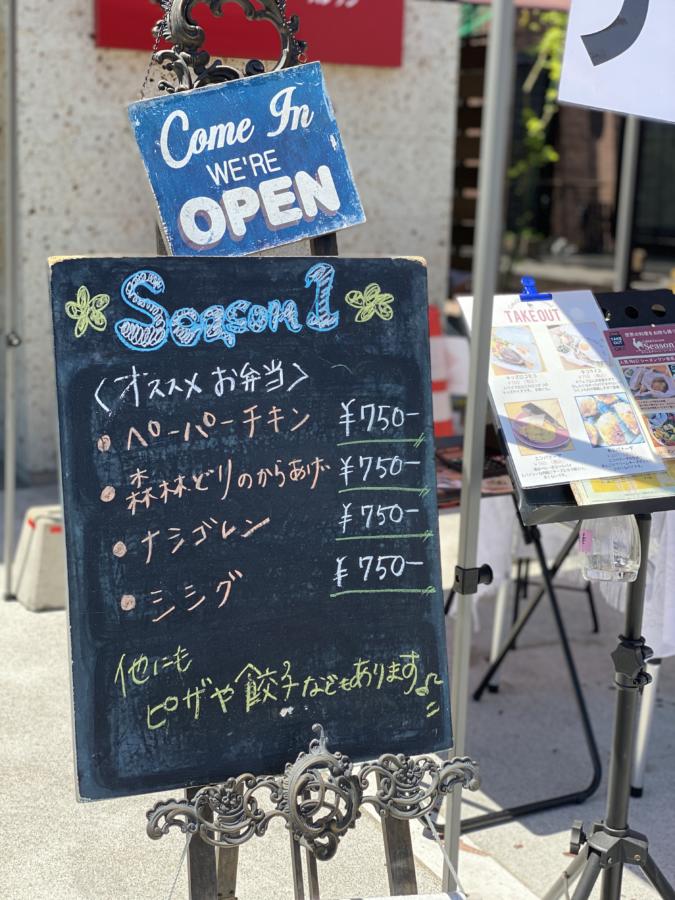 Come In
WE'RE
OPEN
Season 1
〈オススメ お弁当〉
ペーパーチキン ¥750-
森林どりのからあげ ¥750-
ナシゴレン ¥750-
シシグ ¥750-
他にも
ピザや餃子などもあります♫
TAKEOUT
TAKE OUT
Season